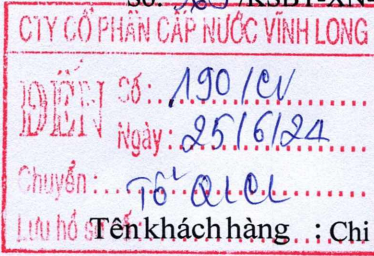 Số: /KSBT-XN-
CTY CỔ PHẦN CẤP NƯỚC VĨNH LONG
ĐẾN
Số: 190/CV
Ngày: 25/6/24
Chuyển: Tổ QLCL
Lưu hồ s
Tên khách hàng : Chi